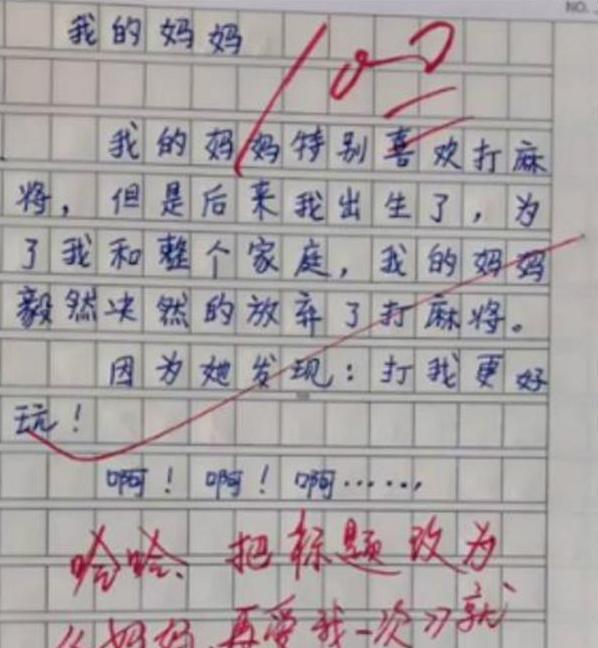 NO.
我的妈妈
100
我的妈妈特别喜欢打麻
将，但是后来我出生了，为
了我和整个家庭，我的妈妈
毅然决然的放弃了打麻将。
因为她发现：打我更好
玩！
啊！啊！啊……
哈哈、把标题改为
《妈妈，再爱我一次》就